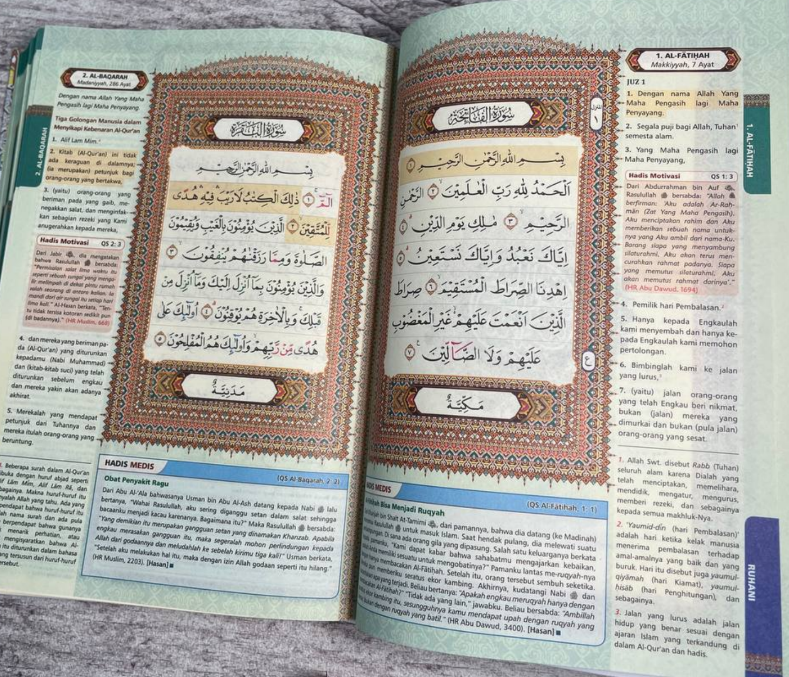 1. AL-FĀTIḤAH
Makkiyyah, 7 Ayat
JUZ 1
1. Dengan nama Allah Yang
Maha Pengasih lagi Maha
Penyayang.
2. Segala puji bagi Allah, Tuhan
semesta alam.
3. Yang Maha Pengasih lagi
Maha Penyayang,
Hadis Motivasi QS 1: 3
Dari Abdurrahman bin Auf
Rasulullah ﷺ bersabda: "Allah
berfirman: 'Aku adalah Ar-Rah-
mān (Zat Yang Maha Pengasih).
Aku menciptakan rahim dan Aku
memberikan sebuah nama untuk-
nya yang Aku ambil dari nama-Ku.
Barang siapa yang menyambung
silaturahmi, Aku akan terus men-
curahkan rahmat padanya. Siapa
yang memutus silaturahmi, Aku
akan memutus rahmat darinya'."
(HR Abu Dawud, 1694)
4. Pemilik hari Pembalasan.²
5. Hanya kepada Engkaulah
kami menyembah dan hanya ke-
pada Engkaulah kami memohon
pertolongan.
6. Bimbinglah kami ke jalan
yang lurus,³
7. (yaitu) jalan orang-orang
yang telah Engkau beri nikmat,
bukan (jalan) mereka yang
dimurkai dan bukan (pula jalan)
orang-orang yang sesat.
1. Allah Swt. disebut Rabb (Tuhan)
seluruh alam karena Dialah yang
telah menciptakan, memelihara,
mendidik, mengatur, mengurus,
memberi rezeki, dan sebagainya
kepada semua makhluk-Nya.
2. 'Yaumid-dīn (hari Pembalasan)'
adalah hari ketika kelak manusia
menerima pembalasan terhadap
amal-amalnya yang baik dan yang
buruk. Hari itu disebut juga yaumul-
qiyāmah (hari Kiamat), yaumul-
ḥisāb (hari Penghitungan), dan
sebagainya.
3. Jalan yang lurus adalah jalan
hidup yang benar sesuai dengan
ajaran Islam yang terkandung di
dalam Al-Qur'an dan hadis.
1. AL-FĀTIḤAH
RUHANI
سُوْرَةُ الْفَاتِحَةِ
بِسْمِ اللّٰهِ الرَّحْمٰنِ الرَّحِيْمِ ١
اَلْحَمْدُ لِلّٰهِ رَبِّ الْعٰلَمِيْنَ ٢ الرَّحْمٰنِ
الرَّحِيْمِ ٣ مٰلِكِ يَوْمِ الدِّيْنِ ٤
اِيَّاكَ نَعْبُدُ وَاِيَّاكَ نَسْتَعِيْنُ ٥
اِهْدِنَا الصِّرَاطَ الْمُسْتَقِيْمَ ٦ صِرَاطَ
الَّذِيْنَ اَنْعَمْتَ عَلَيْهِمْ غَيْرِ الْمَغْضُوْبِ
عَلَيْهِمْ وَلَا الضَّاۤلِّيْنَ ٧
مَكِّيَّةٌ
ع
HADIS MEDIS (QS Al-Fatihah, 1: 1)
Bisa Menjadi Ruqyah
bin Shalt At-Tamimi, dari pamannya, bahwa dia datang (ke Madinah)
Rasulullah ﷺ untuk masuk Islam. Saat hendak pulang, dia melewati suatu
Di sana ada orang gila yang dipasung. Salah satu keluarganya berkata
"Kami dapat kabar bahwa sahabatmu mengajarkan kebaikan.
memiliki sesuatu untuk mengobatinya?" Pamanku lantas me-ruqyah-nya
membacakan Al-Fatihah. Setelah itu, orang tersebut sembuh seketika.
memberiku seratus ekor kambing. Akhirnya, kudatangi Nabi ﷺ dan
apa yang terjadi. Beliau bertanya: "Apakah engkau meruqyah hanya dengan
Al-Fatihah?" "Tidak ada yang lain," jawabku. Beliau bersabda: "Ambillah
kambing itu, sesungguhnya kamu mendapat upah dengan ruqyah yang
dengan ruqyah yang batil." (HR Abu Dawud, 3400). [Hasan]
2. AL-BAQARAH
Madaniyyah, 286 Ayat
Dengan nama Allah Yang Maha
Pengasih lagi Maha Penyayang.
Tiga Golongan Manusia dalam
Menyikapi Kebenaran Al-Qur'an
1. Alif Lam Mim.⁴
2. Kitab (Al-Qur'an) ini tidak
ada keraguan di dalamnya;
(ia merupakan) petunjuk bagi
orang-orang yang bertakwa,
3. (yaitu) orang-orang yang
beriman pada yang gaib, me-
negakkan salat, dan menginfak-
kan sebagian rezeki yang Kami
anugerahkan kepada mereka,
Hadis Motivasi QS 2: 3
Dari Jabir, dia mengatakan
bahwa Rasulullah ﷺ bersabda:
"Permisalan salat lima waktu itu
seperti sebuah sungai yang menga-
lir melimpah di dekat pintu rumah
salah seorang di antara kalian. Ia
mandi dari air sungai itu setiap hari
lima kali." Al-Hasan berkata, "Ten-
tu tidak tersisa kotoran sedikit pun
(di badannya)." (HR Muslim, 668)
4. dan mereka yang beriman pa-
da (Al-Qur'an) yang diturunkan
kepadamu (Nabi Muhammad)
dan (kitab-kitab suci) yang telah
diturunkan sebelum engkau
dan mereka yakin akan adanya
akhirat.
5. Merekalah yang mendapat
petunjuk dari Tuhannya dan
mereka itulah orang-orang yang
beruntung.
Beberapa surah dalam Al-Qur'an
dibuka dengan huruf abjad seperti
2. AL-BAQARAH
سُوْرَةُ الْبَقَرَةِ
بِسْمِ اللّٰهِ الرَّحْمٰنِ الرَّحِيْمِ
الۤمّۤ ١ ذٰلِكَ الْكِتٰبُ لَا رَيْبَ فِيْهِ هُدًى
لِّلْمُتَّقِيْنَ ٢ الَّذِيْنَ يُؤْمِنُوْنَ بِالْغَيْبِ وَيُقِيْمُوْنَ
الصَّلٰوةَ وَمِمَّا رَزَقْنٰهُمْ يُنْفِقُوْنَ ٣
وَالَّذِيْنَ يُؤْمِنُوْنَ بِمَآ اُنْزِلَ اِلَيْكَ وَمَآ اُنْزِلَ مِنْ
قَبْلِكَ وَبِالْاٰخِرَةِ هُمْ يُوْقِنُوْنَ ٤ اُولٰۤىِٕكَ عَلٰى
هُدًى مِّنْ رَّبِّهِمْ وَاُولٰۤىِٕكَ هُمُ الْمُفْلِحُوْنَ ٥
مَدَنِيَّةٌ
HADIS MEDIS (QS Al-Baqarah, 2: 2)
Obat Penyakit Ragu
Dari Abu Al-'Ala bahwasanya Usman bin Abu Al-Ash datang kepada Nabi ﷺ lalu
bertanya, "Wahai Rasulullah, aku sering diganggu setan dalam salat sehingga
bacaanku menjadi kacau karenanya. Bagaimana itu?" Maka Rasulullah ﷺ bersabda:
"Yang demikian itu merupakan gangguan setan yang dinamakan Khanzab. Apabila
engkau merasakan gangguan itu, maka segeralah mohon perlindungan kepada
Allah dari godaannya dan meludahlah ke sebelah kirimu tiga kali!" Usman berkata,
"Setelah aku melakukan hal itu, maka dengan izin Allah godaan seperti itu hilang."
(HR Muslim, 2203). [Hasan]